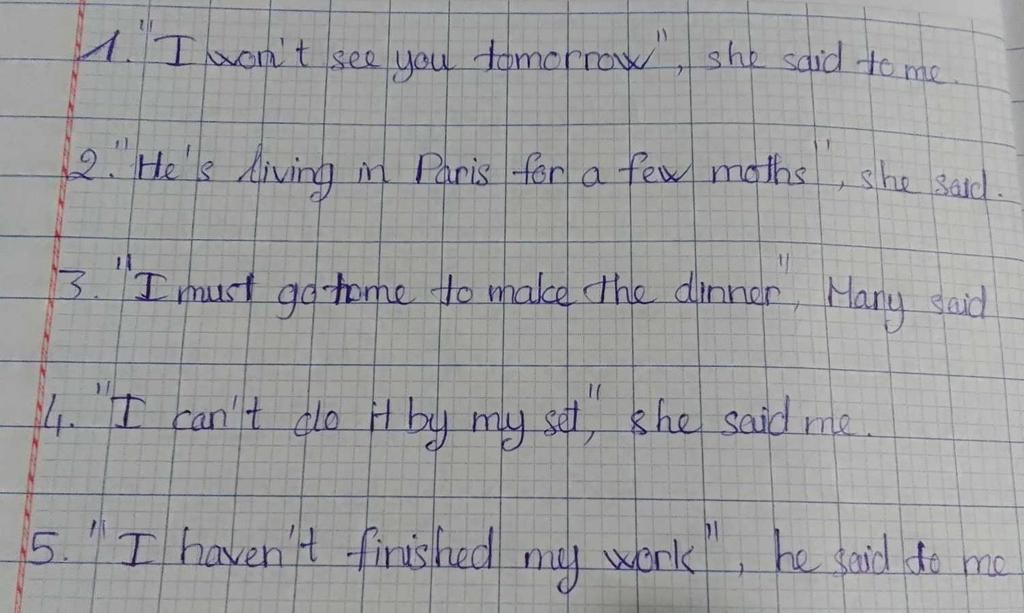 1. "I won't see you tomorrow", she said to me.
2. "He's living in Paris for a few moths", she said.
3. "I must go tome to make the dinner", Mary said
4. "I can't do it by my set", she said me.
5. "I haven't finished my work", he said to me